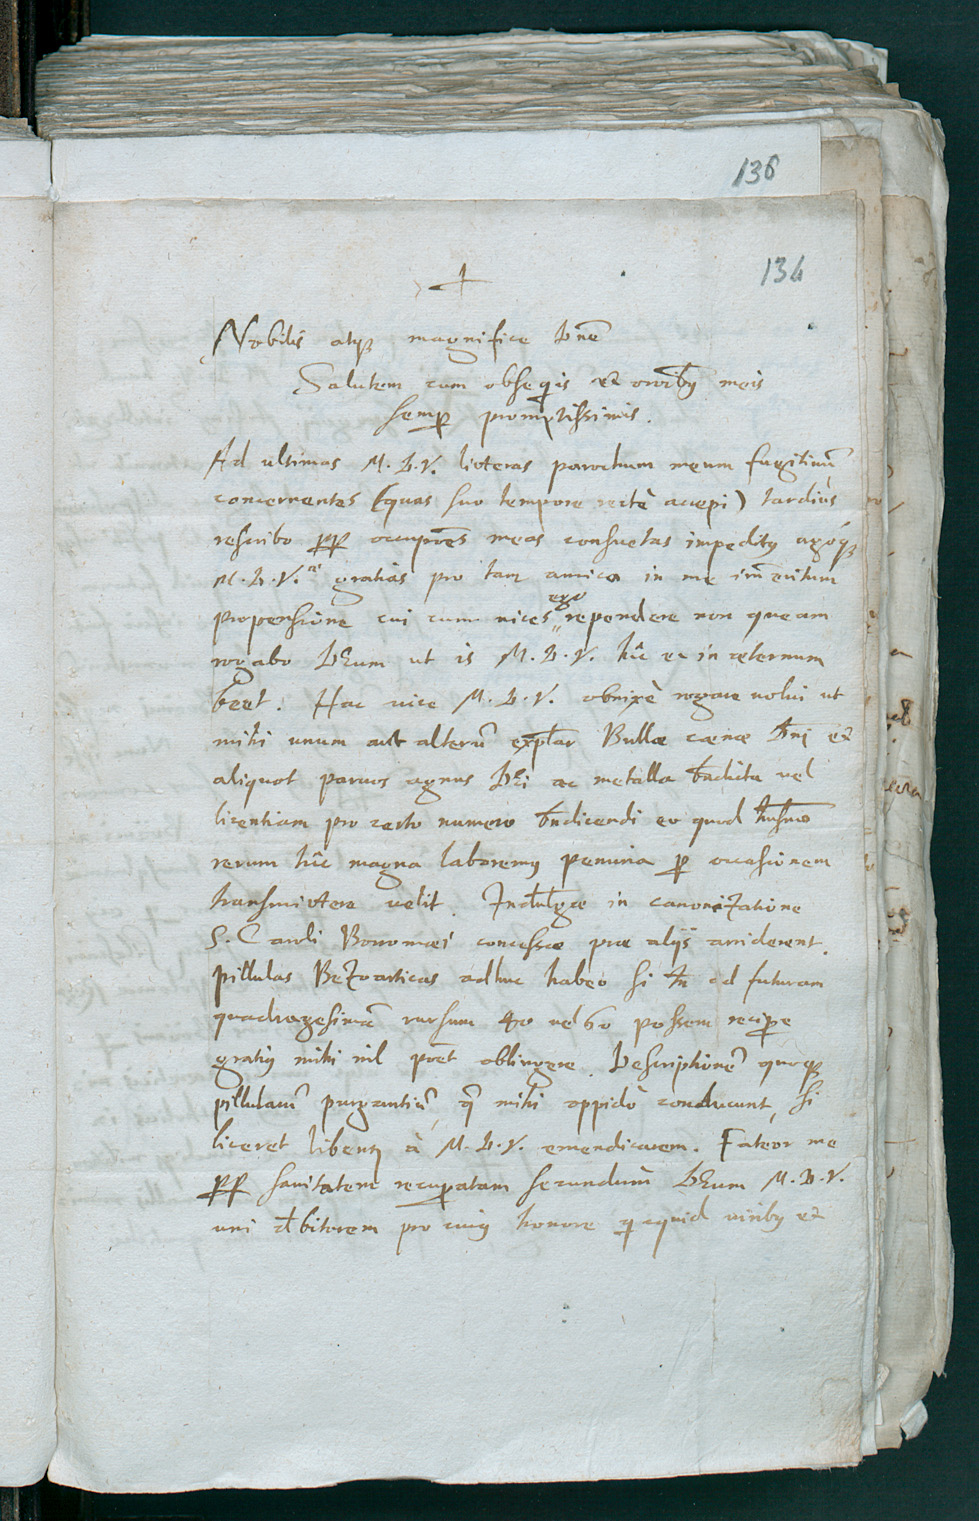 136
134
+
Nobilis atq̃ magnifice Dñe
Salutem cum obsequis et oratib9 meis
semp promptissimis.
Ad ultimas M. D. V. litteras parochum meum fugitiuũ
concernentes (quas suo tempore rectè accepi) tardius
rescribo pp occupões meas consuetas impedit9 agóq̃
M. D. V. gratias pro tam amica in me im̃eritum
propensione cui cum uices ego rependere non queam
rogabo DEum ut is M. D. V. hîc et in æternum
beet. Hac uice M. D. V. obnixè rogare uolui ut
mihi unum aut alterũ explar Bullæ cænæ Dñj et
aliquot paruos agnus DEi ac metalla bñdicta uel
licentiam pro certo numero bñdicendi eo quod
rerum hîc magna laborem9 penuria p occasionem
transmittere uelit. Indulgæ in canonizatione
S. Caroli Borromæi concessæ præ alijs arriderent.
pillulas Bezoarticas adhuc habeo si tñ ad futuram
quadragesimã rursum 40 uel 60 possem recipe
grati9 mihi nil poet obtingere. Descriptionẽ quoq̃
pillularũ purgantiũ, q̃ mihi oppidò conducunt, si
liceret libent9 à M. D. V. emendicarem. Fateor me
pp sanitatem recupatam secundum DEum M. D. V.
uni debitorem pro cui9 honore quicquid uirib9 et